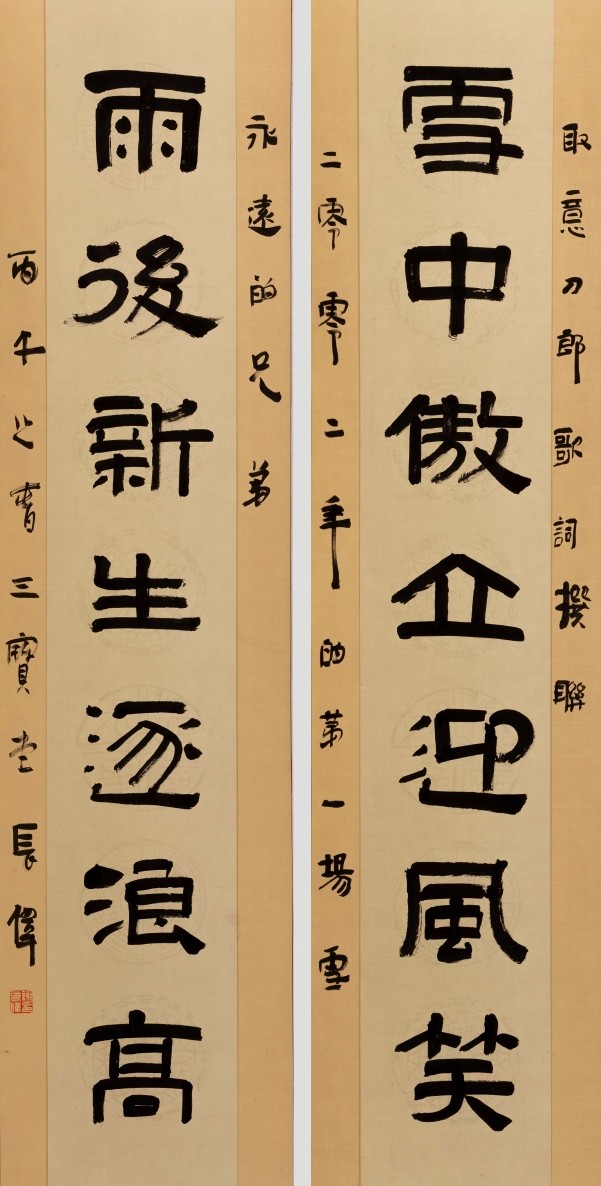 取意刀郎歌詞撰聯
雪中傲立迎風笑
二零零二年的第一場雪
永遠的兄弟
雨後新生逐浪高
丙午之春三寶堂長偉